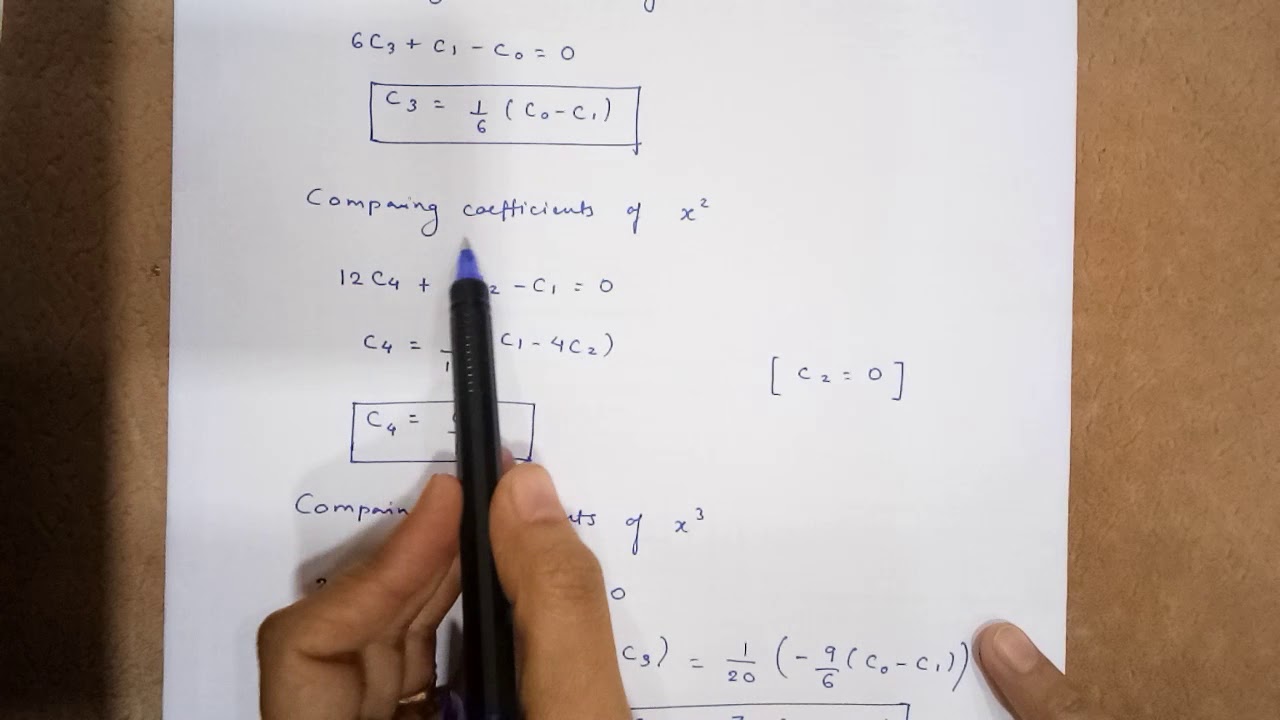 6C₃ + C₁ - C₀ = 0
C₃ = 1/6 (C₀ - C₁)
Comparing coefficients of x²
12C₄ + ₂ - C₁ = 0
C₄ = C₁ - 4C₂)
[C₂ = 0]
C₄ =
of x³
0
C₃) = 1/20 (-9/6 (C₀ - C₁))